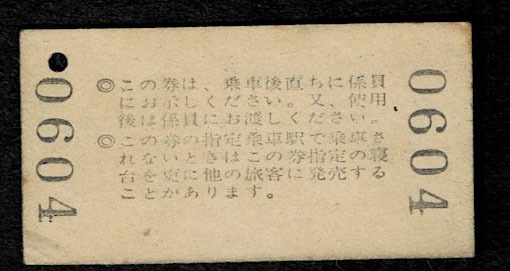 0604
◎この券は、乗車後直ちに係員
にお示しください。又、使用
後は係員にお渡しください。
◎この券の指定乗車駅で乗車さ
れないときはこの券指定の寝
台を更に他の旅客に発売する
ことがあります。
0604